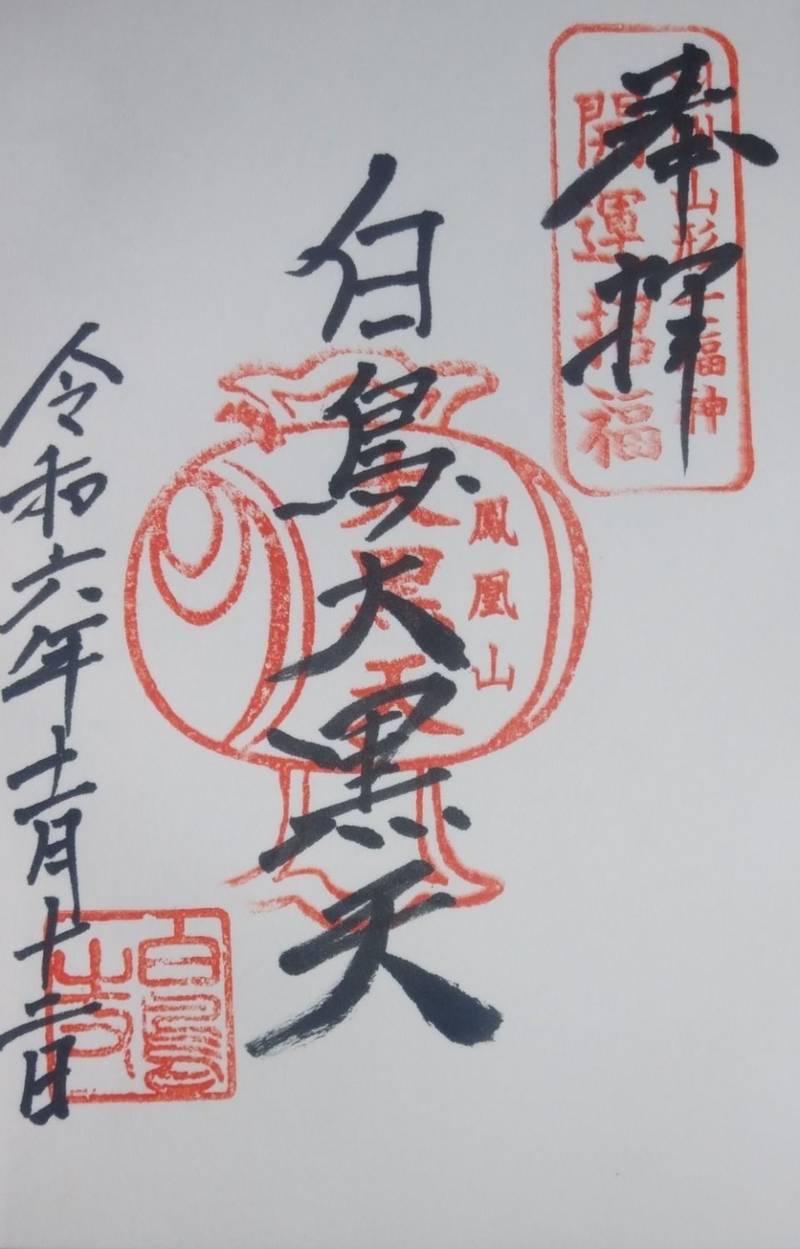 奉拝
羽州山形七福神
開運招福
白鳥大黒天
鳳凰山
大黒天
令和六年十一月十二日
白鳥寺